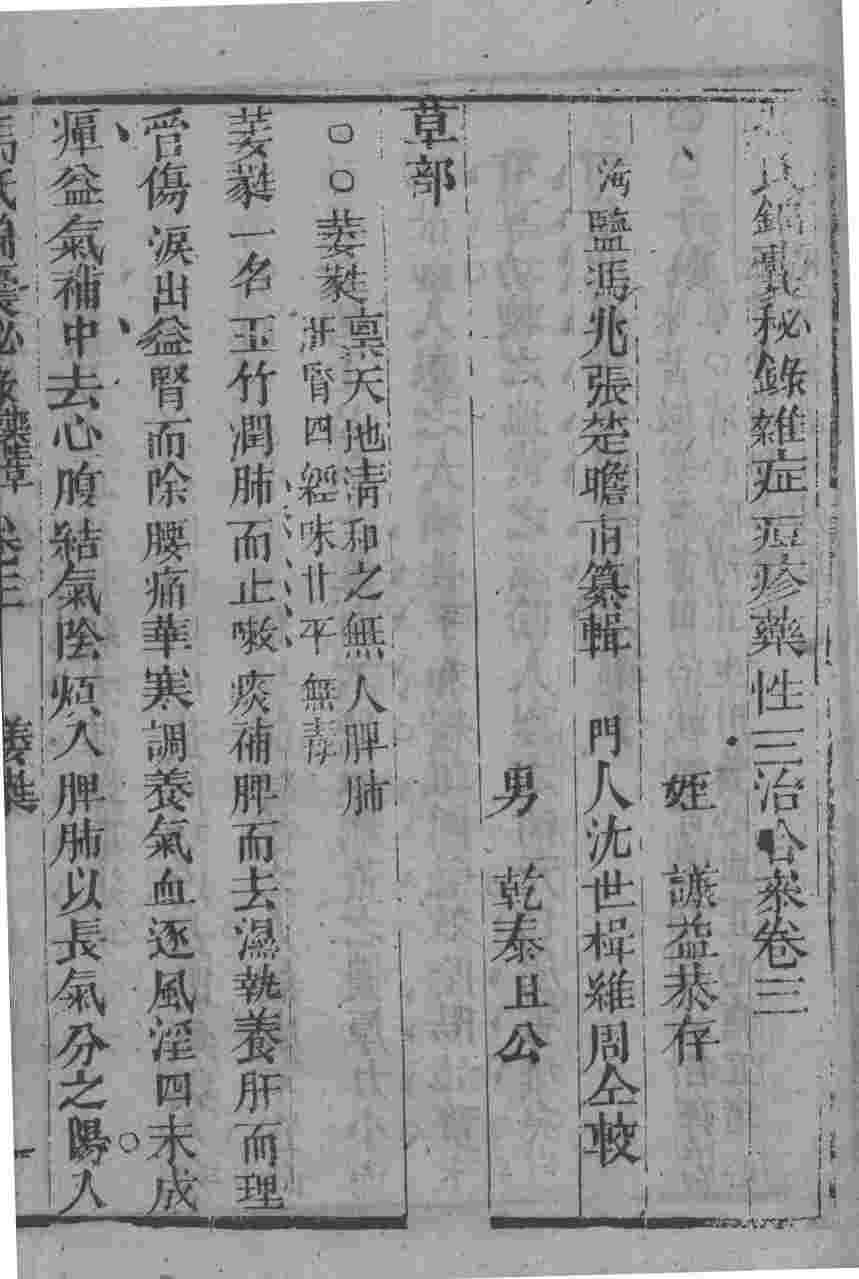 氏錦囊秘錄雜症痘疹藥性主治合參卷三
姪 謙益恭存
海鹽馮兆張楚瞻甫纂輯 門人沈世楫維周仝較
男 乾泰且公
草部
○○萎蕤
稟天地清和之無入脾肺
肝腎四經味甘平無毒
萎蕤一名玉竹潤肺而止嗽痰補脾而去濕執養肝而理
眥傷淚出益腎而除腰痛華寒調養氣血逐風淫四末成
癉益氣補中去心腹結氣陰煩入脾肺以長氣分之陽入
馮氏錦囊秘錄 卷三 萎蕤 一